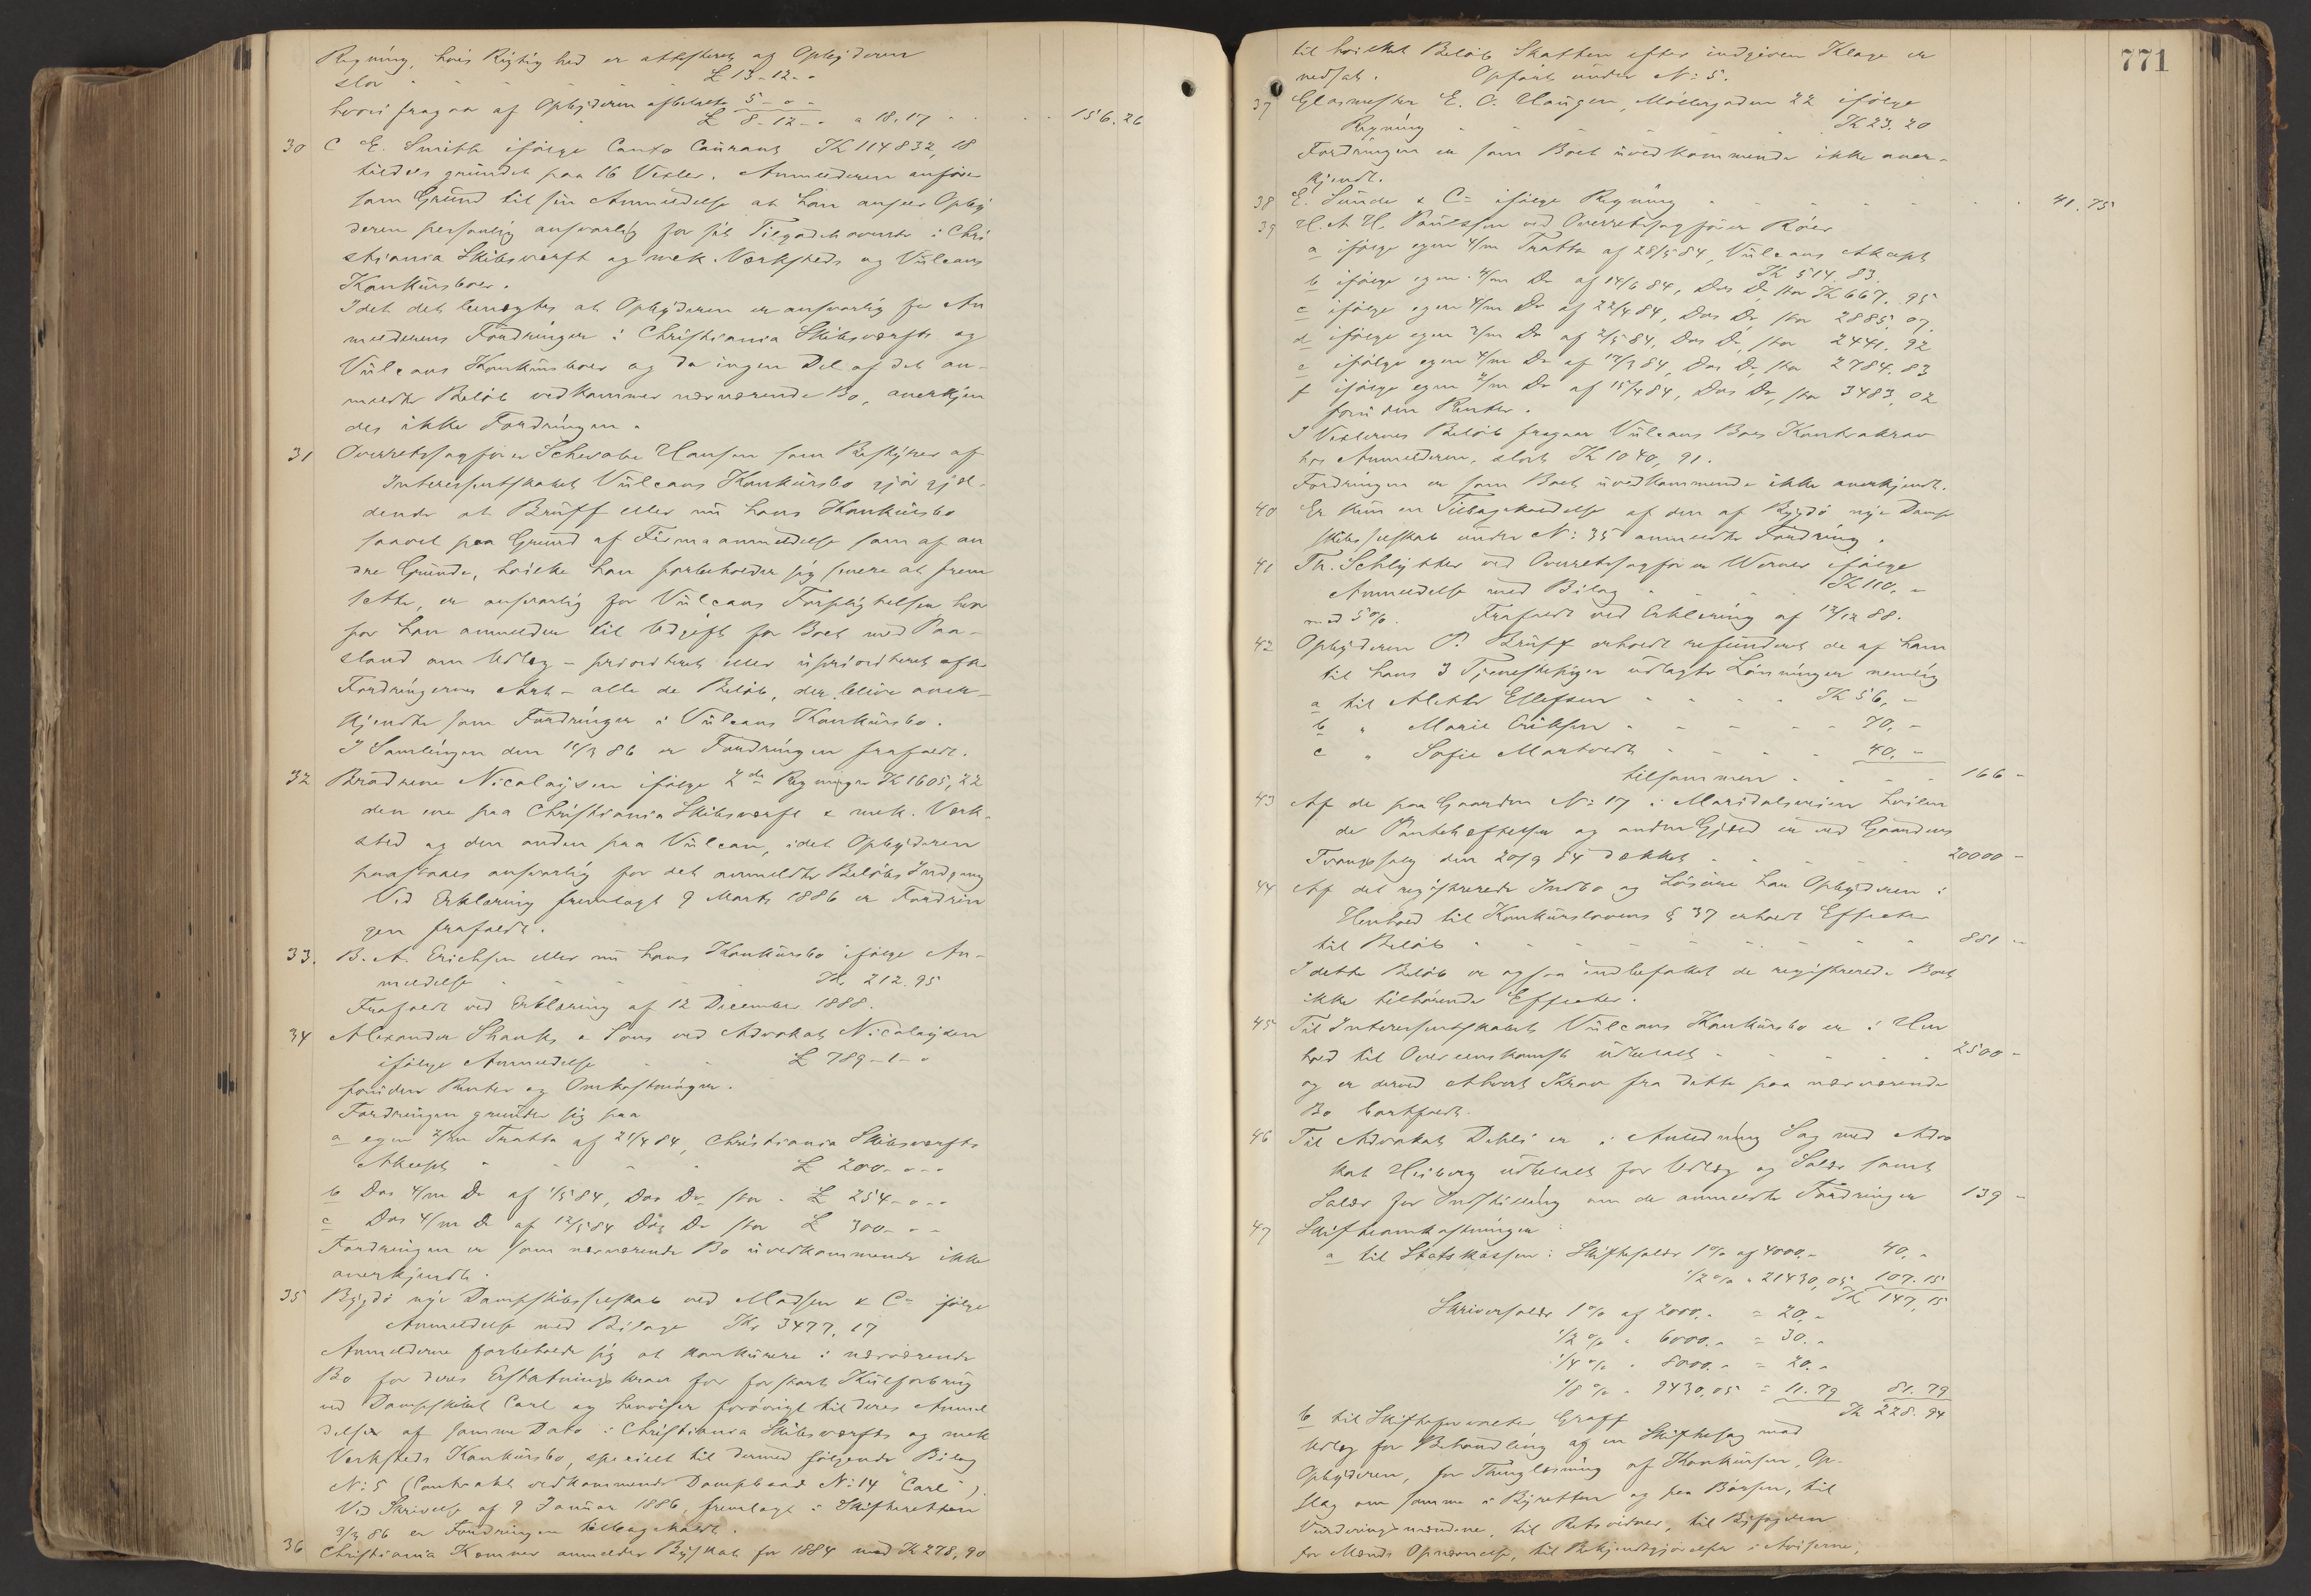 Regning, hvis Rigtighed er attesteret af Opbyderen
stor " " " £ 13-12-"
hvori fragaar af Opbyderen afbetalte 5 - " -
£ 8-12-" a 18.17 " " 156.26
30 C E. Smith ifølge Conto Courant Kr 114832,18
tildels grundet paa 16 Vexler. Anmelderen anfører
som Grund til sin Anmeldelse at han anseer Opby
deren personlig ansvarlig for sit Tilgodehavende i Chri
stiania Skibsværft og mek. Værksteds og Vulcans
Konkursboer.
Idet det benegtes at Opbyderen er ansvarlig for An
melderens Fordringer i Christiania Skibsværfts og
Vulcans Konkursboer og da ingen Del af det an-
meldte Beløb vedkommer nærværende Bo, anerkjen
des ikke Fordringen.
31 Overretssagfører Schwabe Hansen som Bestyrer af
Interessentskabet Vulcans Konkursbo gjør gjæl-
dende at Bruff eller nu hans Konkursbo
saavel paa Grund af Firmaanmeldelse som af an
dre Grunde, hvilke han forbeholder sig senere at frem
sætte, er ansvarlig for Vulcans Forpligtelser, hvor
for han anmelder til Udgift for Boet med Paa-
stand om Udlæg - prioriteret eller uprioriteret efter
Fordringernes Art - alle de Beløb, der blive aner-
kjendte som Fordringer i Vulcans Konkursbo.
I Samlingen den 15/3 86 er Fordringen frafaldt.
32 Brødrene Nicolaysen ifølge 2de Regninger Kr 1605,22
den ene paa Christiania Skibsværft & mek. Værk-
sted og den anden paa Vulcan, idet Opbyderen
paastaaes ansvarlig for det anmeldte Beløbs Indgang
Ved Erklæring fremlagt 9 Marts 1886 er Fordrin
gen frafaldt.
33. B. A. Erichsen eller nu hans Konkursbo ifølge An-
meldelse " " " Kr. 212.95
Frafaldt ved Erklæring af 12 December 1888.
34 Alexander Shanks & Sons ved Advokat Nicolaysen
ifølge Anmeldelse " " £ 789-1-"
foruden Renter og Omkostninger.
Fordringen grunder sig paa
a egen 4/m Tratte af 21/4 84, Christiania Skibsværfts
Akcept " " " £ 200-"-"
b Dos 4/m Do af 1/5 84, Dos Do, stor " £ 254-"-"
c Dos 4/m Do af 12/5 84 Dos Do stor £ 300-"-
Fordringen er som nærværende Bo uvedkommende ikke
anerkjendt.
35 Bygdø nye Dampskibsselskab ved Madsen & Co ifølge
Anmeldelse med Bilage Kr 3477,17
Anmelderne forbeholde sig at konkurrere i nærværende
Bo for deres Erstatningskrav for forstort Kulforbrug
ved Dampskibet Carl og henviser forøvrigt til deres Anmel
delse af samme Dato i Christiania Skibsværfts og mek
Værksteds Konkursbo, specielt til dermed følgende Bilag
No: 5 (Contrakt vedkommende Dampbaad No: 14 "Carl").
Ved Skrivelse af 9 Januar 1886, fremlagt i Skifteretten
9/3 86 er Fordringen tilbagekaldt.
36 Christiania Kemner anmelder Byskat for 1884 med Kr 278,90
771
til hvilket Beløb Skatten efter indgiven Klage er
nedsat. Opført under No: 5.
37 Glasmester E. O. Haugen, Møllergaden 22 ifølge
Regning " " " " Kr 23.20
Fordringen er som Boet uvedkommende ikke aner-
kjendt.
38 E. Sunde & Co ifølge Regning " " " " 41.75
39 H. A. H. Paulsson ved Overretssagfører Roer
a ifølge egen 4/m Tratte af 28/5 84, Vulcans Akcept
Kr 514.83.
b ifølge egen 4/m Do af 14/6 84, Dos Do, stor Kr 667.95
c ifølge egen 4/m Do af 22/4 84, Dos Do, stor 2885.07.
d ifølge egen 4/m Do af 2/5 84, Dos Do, stor 2441.92
e ifølge egen 4/m Do af 17/3 84, Dos Do, stor 2784.83
f ifølge egen 4/m Do af 15/4 84, Dos Do, stor 3483,02
foruden Renter.
I Vexlernes Beløb fragaar Vulcans Boes Kontrakrav
hos Anmelderen, stort Kr 1040,91.
Fordringen er som Boet uvedkommende ikke anerkjendt.
40 Er kun en Tilbagekaldelse af den af Bygdø nye Damp
skibsselskab under No: 35 anmeldte Fordring.
41 Th. Schlytter ved Overretssagfører Werner ifølge
Anmeldelse med Bilag " " " Kr 110,-
med 5%. Frafaldt ved Erklæring af 12/12 88.
42 Opbyderen P. Bruff erholdt refunderet de af ham
til hans 3 Tjenestepiger udlagte Lønninger nemlig
a til Alette Ellefsen " " " Kr 56,-
b " Marie Eriksen " " " 70,-
c " Sofie Martvedt " " " 40,-
tilsammen " " " 166 -
43 Af de paa Gaarden No: 17 i Maridalsveien hvilen
de Pantehæftelser og anden Gjæld er ved Gaardens
Tvangssalg den 20/9 84 dækket " " " 20000 -
44 Af det registrerede Indbo og Løsøre har Opbyderen i
Henhold til Konkurslovens § 37 erholdt Effecter
til Beløb " " " " 881 -
I dette Beløb er ogsaa indbefattet de registrerede Boet
ikke tilhørende Effecter.
45 Til Interessentskabet Vulcans Konkursbo er i Hen
hold til Overenskomst udbetalt " " " 2500 -
og er derved ethvert Krav fra dette paa nærværende
Bo bortfaldt.
46 Til Advokat Dahl er i Anledning Sag med Advo
kat Heiberg udbetalt for Udlæg og Salær samt
Salær for Indstilling om de anmeldte Fordringer 139 -
47 Skifteomkostninger:
a til Statskassen: Skiftesalær 1% af 4000.- 40,-
1/2 % " 21430,05 107.15
Kr 147,15
Skriversalær 1% af 2000.- = 20,-
1/2 % " 6000.- = 30.-
1/4 % " 8000.- = 20.-
1/8 % " 9430,05 = 11.79 81.79
Kr 228.94
b til Skifteforvalter Graff
Udlæg for Behandling af en Skiftesag mod
Opbyderen, for Thinglæsning af Konkursen, Op-
slag om samme i Byretten og paa Børsen, til
Vurderingsmændene, til Retsvidner, til Byfogden
for Mænds Opnævnelse, til Bekjendtgjørelser i Aviserne,